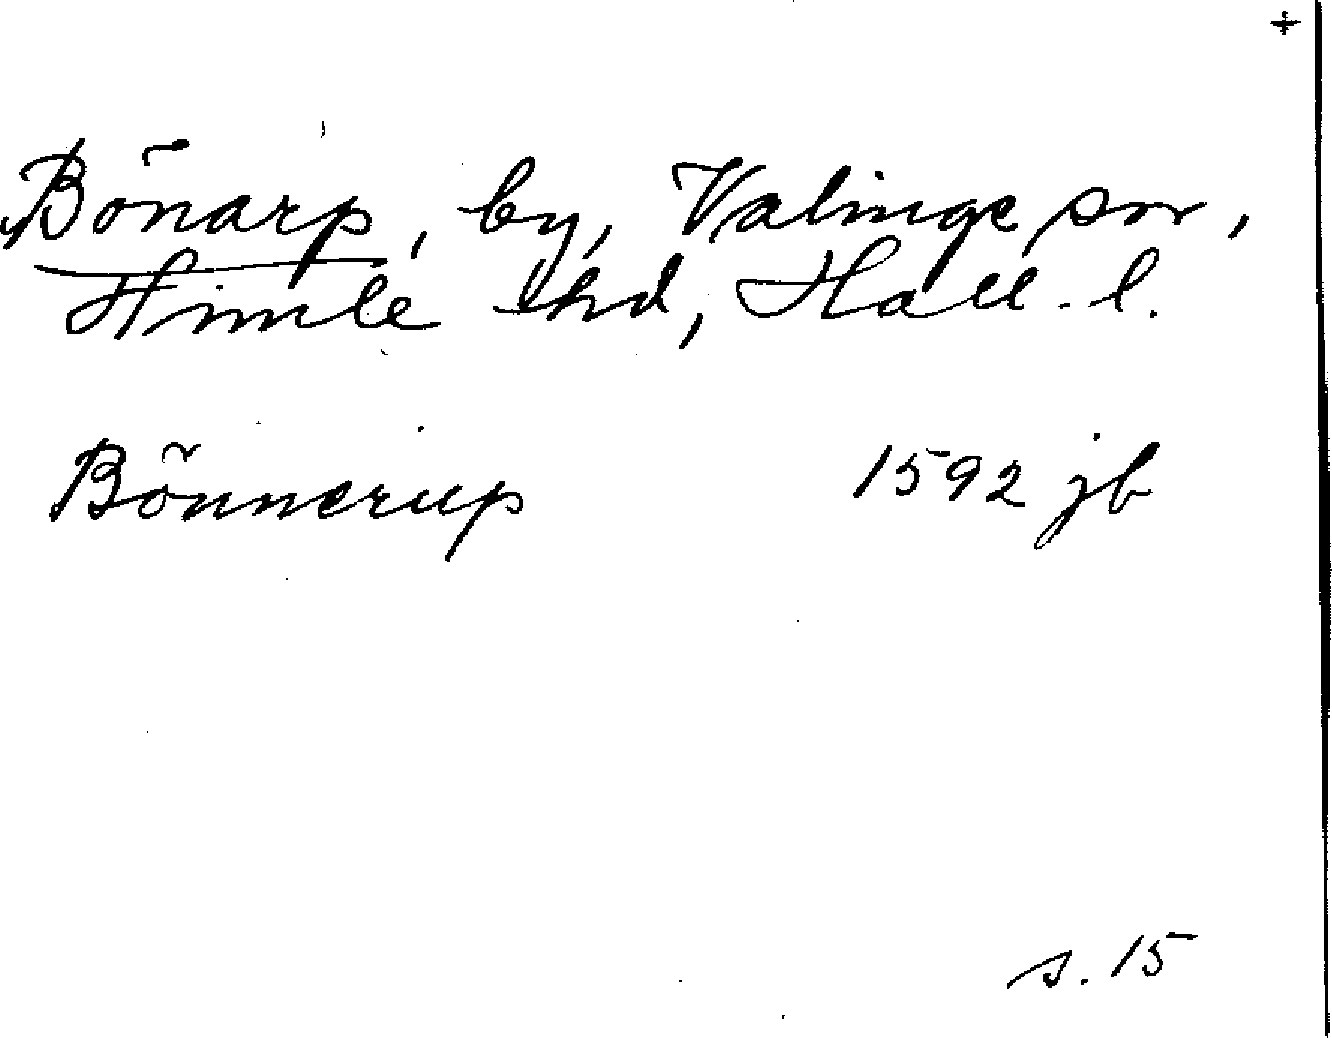 +
Bönarp, by, Valinge snr,
Himle hd, Hall. l.
Bönnerup 1592 jb
s. 15